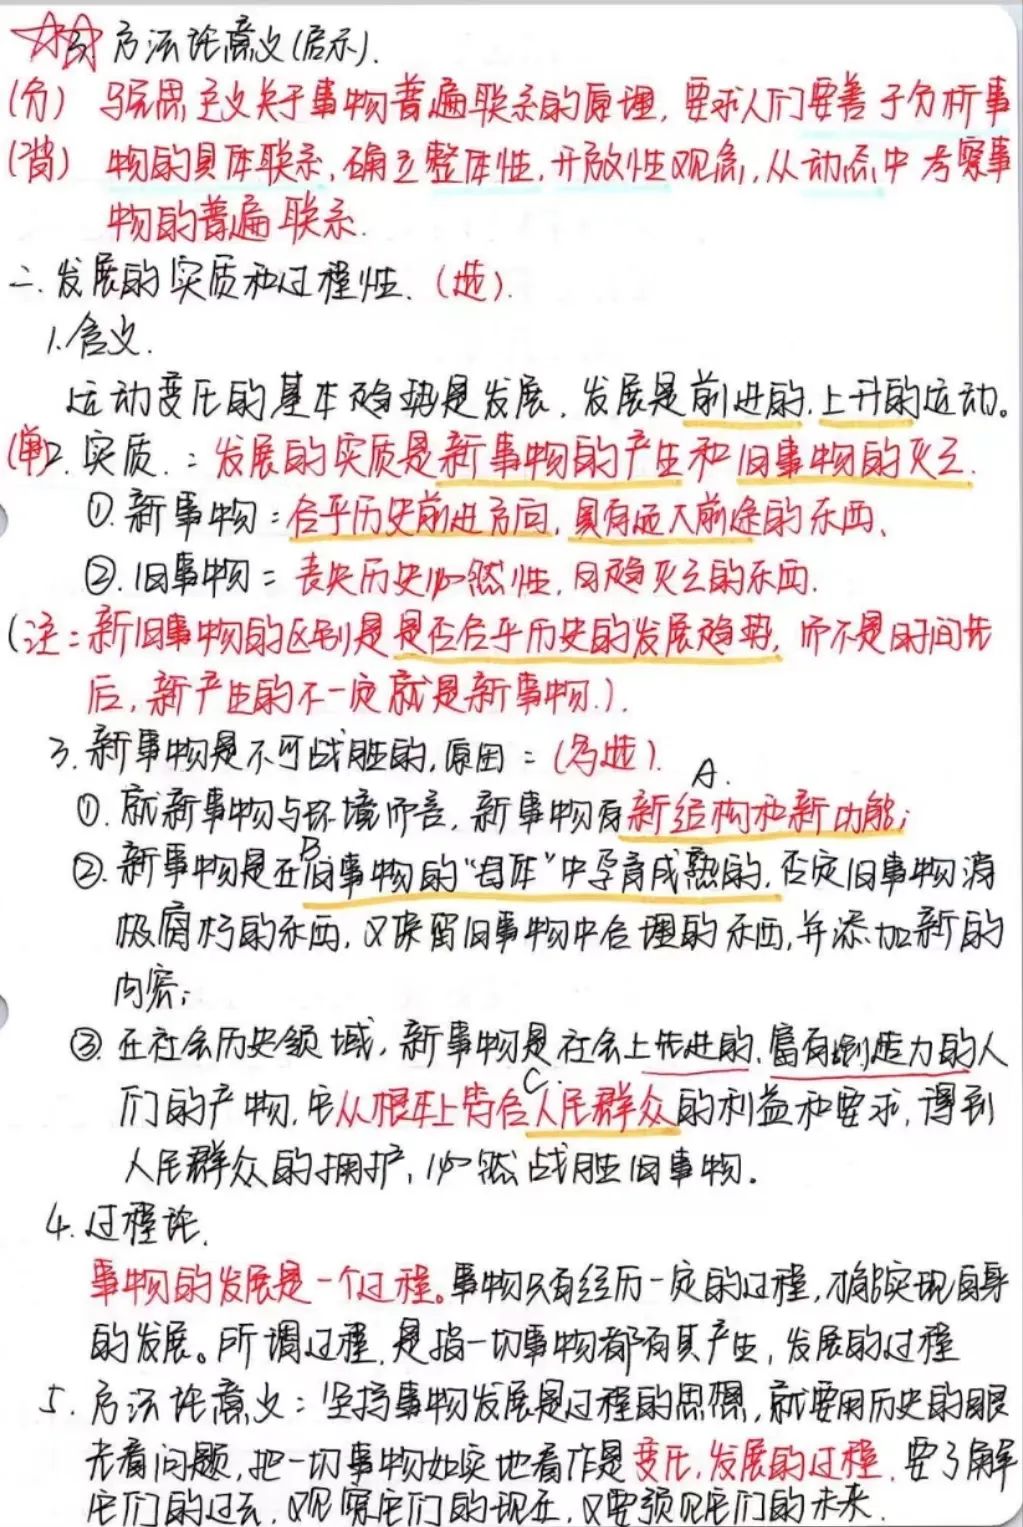 3. 方法论意义(启示).
(分) 马克思主义关于事物普遍联系的原理, 要求人们要善于分析事
(背) 物的具体联系, 确立整体性, 开放性观念, 从动态中考察事
物的普遍联系.
二. 发展的实质和过程性. (选).
1. 含义.
运动变化的基本趋势是发展. 发展是前进的.上升的运动。
(单)2. 实质.: 发展的实质是新事物的产生和旧事物的灭亡.
①. 新事物: 合乎历史前进方向, 具有远大前途的东西、
②. 旧事物: 丧失历史必然性, 日趋灭亡的东西.
(注: 新旧事物的区别是是否合乎历史的发展趋势, 而不是时间先
后, 新产生的不一定就是新事物.).
3. 新事物是不可战胜的, 原因: (多选).
A.
①. 就新事物与环境而言, 新事物有新结构和新功能;
B
②. 新事物是在旧事物的“母体”中孕育成熟的, 否定旧事物消
极腐朽的东西, 又保留旧事物中合理的东西, 并添加新的
内容;
③. 在社会历史领域, 新事物是社会上先进的、富有创造力的人
C.
们的产物, 它从根本上符合人民群众的利益和要求, 得到
人民群众的拥护, 必然战胜旧事物.
4. 过程论.
事物的发展是一个过程。事物只有经历一定的过程, 才能实现自身
的发展。所谓过程, 是指一切事物都有其产生, 发展的过程
5. 方法论意义: 坚持事物发展是过程的思想, 就要用历史的眼
光看问题, 把一切事物如实地看作是变化, 发展的过程. 要了解
它们的过去, 观察它们的现在, 又要预见它们的未来.